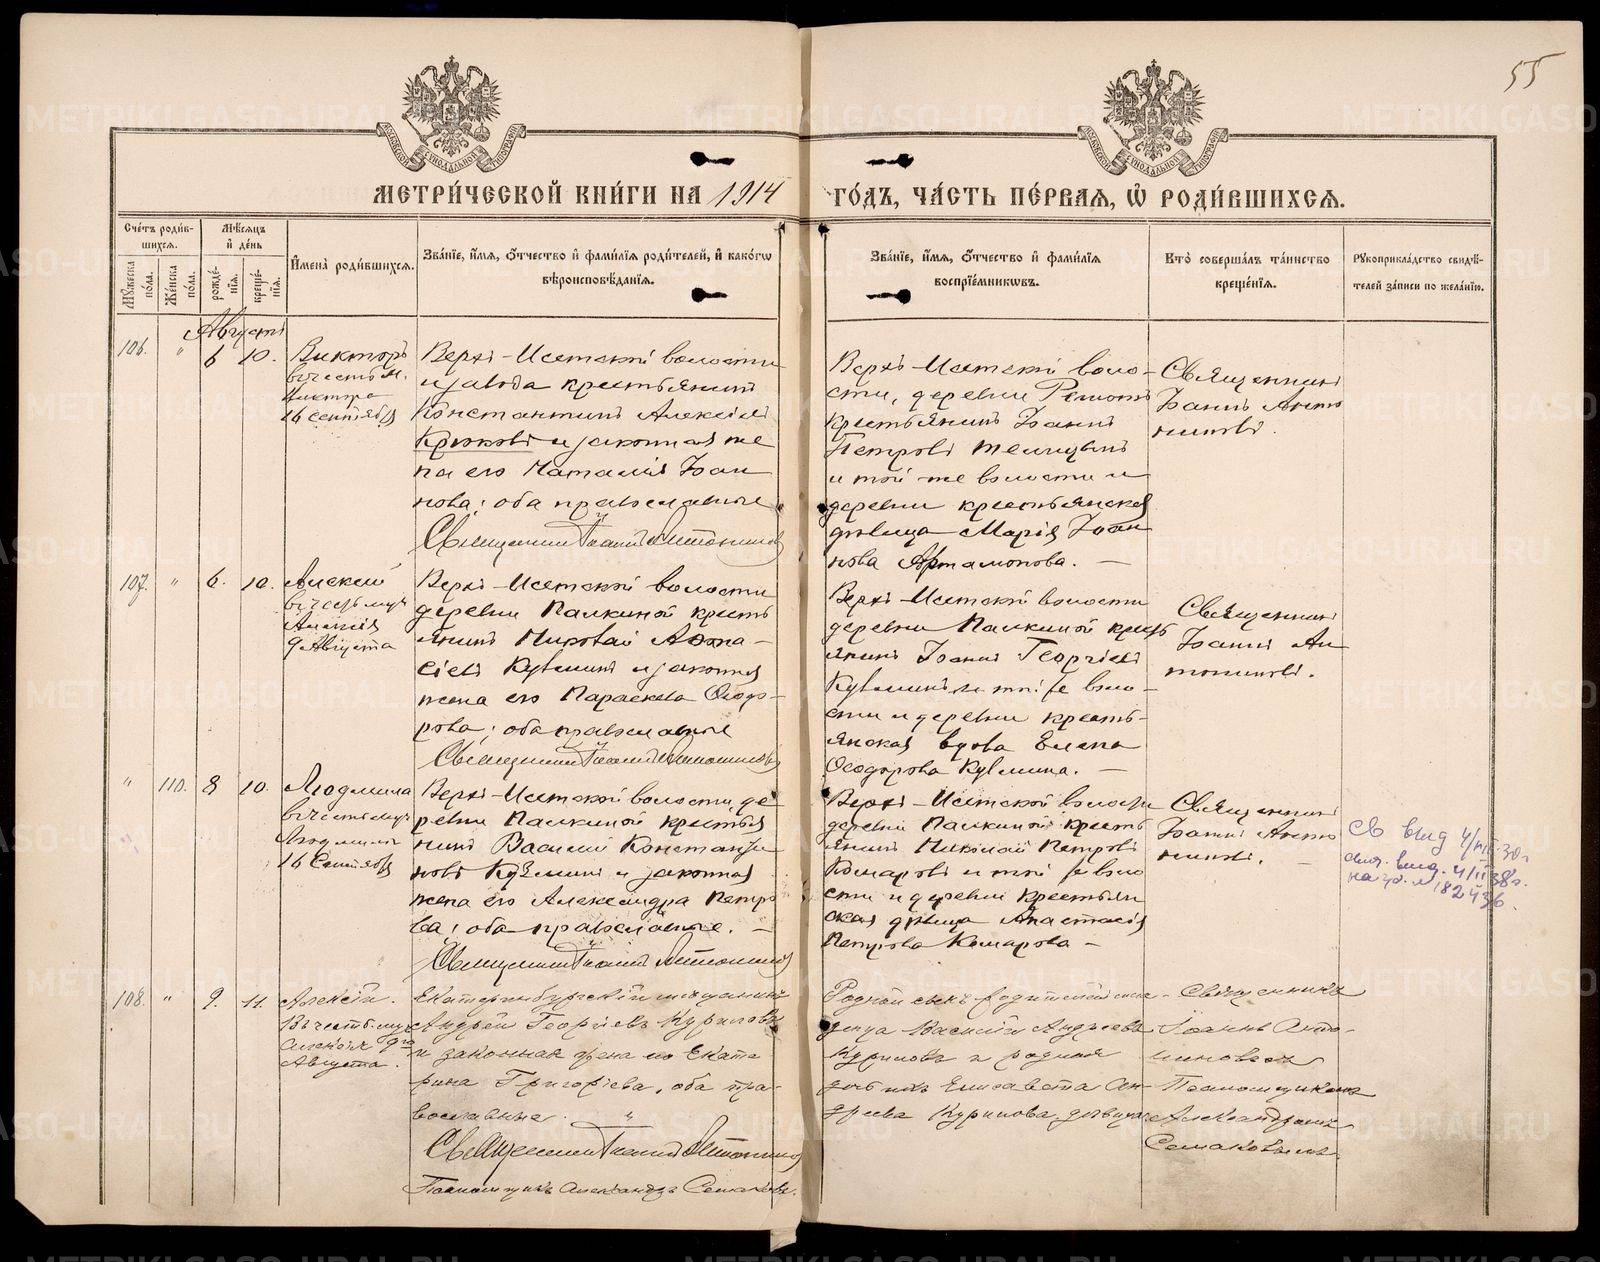 55
МОСКОВСКОЙ СѴНОДАЛЬНОЙ ТИПОГРАФІИ
МОСКОВСКОЙ СѴНОДАЛЬНОЙ ТИПОГРАФІИ
МЕТРИ́ЧЕСКОЙ КНИ́ГИ НА 1914
ГО́ДЪ, ЧА́СТЬ ПЕ́РВАѦ, Ѽ РОДИ́ВШИХСѦ.
Сче́тъ роди́в-
шихсѧ.
Мꙋжеска по́ла.
Же́нска по́ла.
Мѣ́сѧцъ
и҆ де́нь
рожде́-
нїѧ.
креще́-
нїѧ.
И҆мена̀ роди́вшихсѧ.
Зва́нїе, и҆́мѧ, ѻ҆́тчество и҆ фами́лїѧ роди́телей, и҆ како́гѡ
вѣроисповѣ́данїѧ.
Зва́нїе, и҆́мѧ, ѻ҆́тчество и҆ фами́лїѧ
воспрїе́мникѡвъ.
Кто̀ соверша́лъ та́инство
креще́нїѧ.
Рꙋкоприкла́дство свидѣ́-
телей за́писи по жела́нїю.
Августъ
106. " 6 10.
Викторъ
въ честь м.
Виктора
16 Сентября
Верхъ-Исетской волости
и завода крестьянинъ
Константинъ Алексіевъ
Крюковъ и законная же
на его Наталія Іоан
нова; оба православные
Священникъ Іоаннъ Антониновъ
Верхъ-Исетской воло-
сти, деревни Решотъ
крестьянинъ Іоаннъ
Петровъ
и той-же волости и
деревни крестьянская
дѣвица Марія Іоан
нова Артамонова. —
Священникъ
Іоаннъ Анто
ниновъ.
107. " 6. 10.
Алексій
въ честь муч.
Алексія
9 Августа
Верхъ-Исетской волости
деревни Палкиной кресть
янинъ Николай Афона-
сіевъ Кузьминъ и законная
жена его Параскева Ѳеодо-
рова; оба православные
Священникъ Іоаннъ Антониновъ
Верхъ-Исетской волости
деревни Палкиной кресть
янинъ Іоаннъ Георгіевъ
Кузьминъ и той же воло-
сти и деревни кресть-
янская вдова Елена
Ѳеодорова Кузьмина. —
Священникъ
Іоаннъ Ан
тониновъ.
" 110. 8 10.
Людмила
въ честь муч.
Людмилы
16 Сентября
Верхъ-Исетской волости, де
ревни Палкиной крестья
нинъ Василій Константи
новъ Кузьминъ и законная
жена его Александра Петро
ва; оба православные. —
Священникъ Іоаннъ Антониновъ
Верхъ-Исетской волости
деревни Палкиной кресть
янинъ Николай Петровъ
Комаровъ и той же воло
сти и деревни крестьян
ская дѣвица Анастасія
Петрова Комарова —
Священникъ
Іоаннъ Анто
ниновъ. —
108. " 9. 11.
Алексій.
Въ честь муч.
Алексія 9го
Августа.
Екатеринбургскій мѣщанинъ
Андрей Георгіевъ Куриловъ
и законная жена его Екате
рина Григоріева, оба пра-
вославные. "
Священникъ Іоаннъ Антониновъ
Псаломщикъ Александръ Семаковъ.
Родной сынъ родителей мла-
денца Василій Андреевъ
Куриловъ и родная
дочь ихъ Елисавета Ан-
дреева Курилова, дѣвица
Священникъ
Іоаннъ Анто-
ниновъ съ
Псаломщикомъ
Александромъ
Семаковымъ.